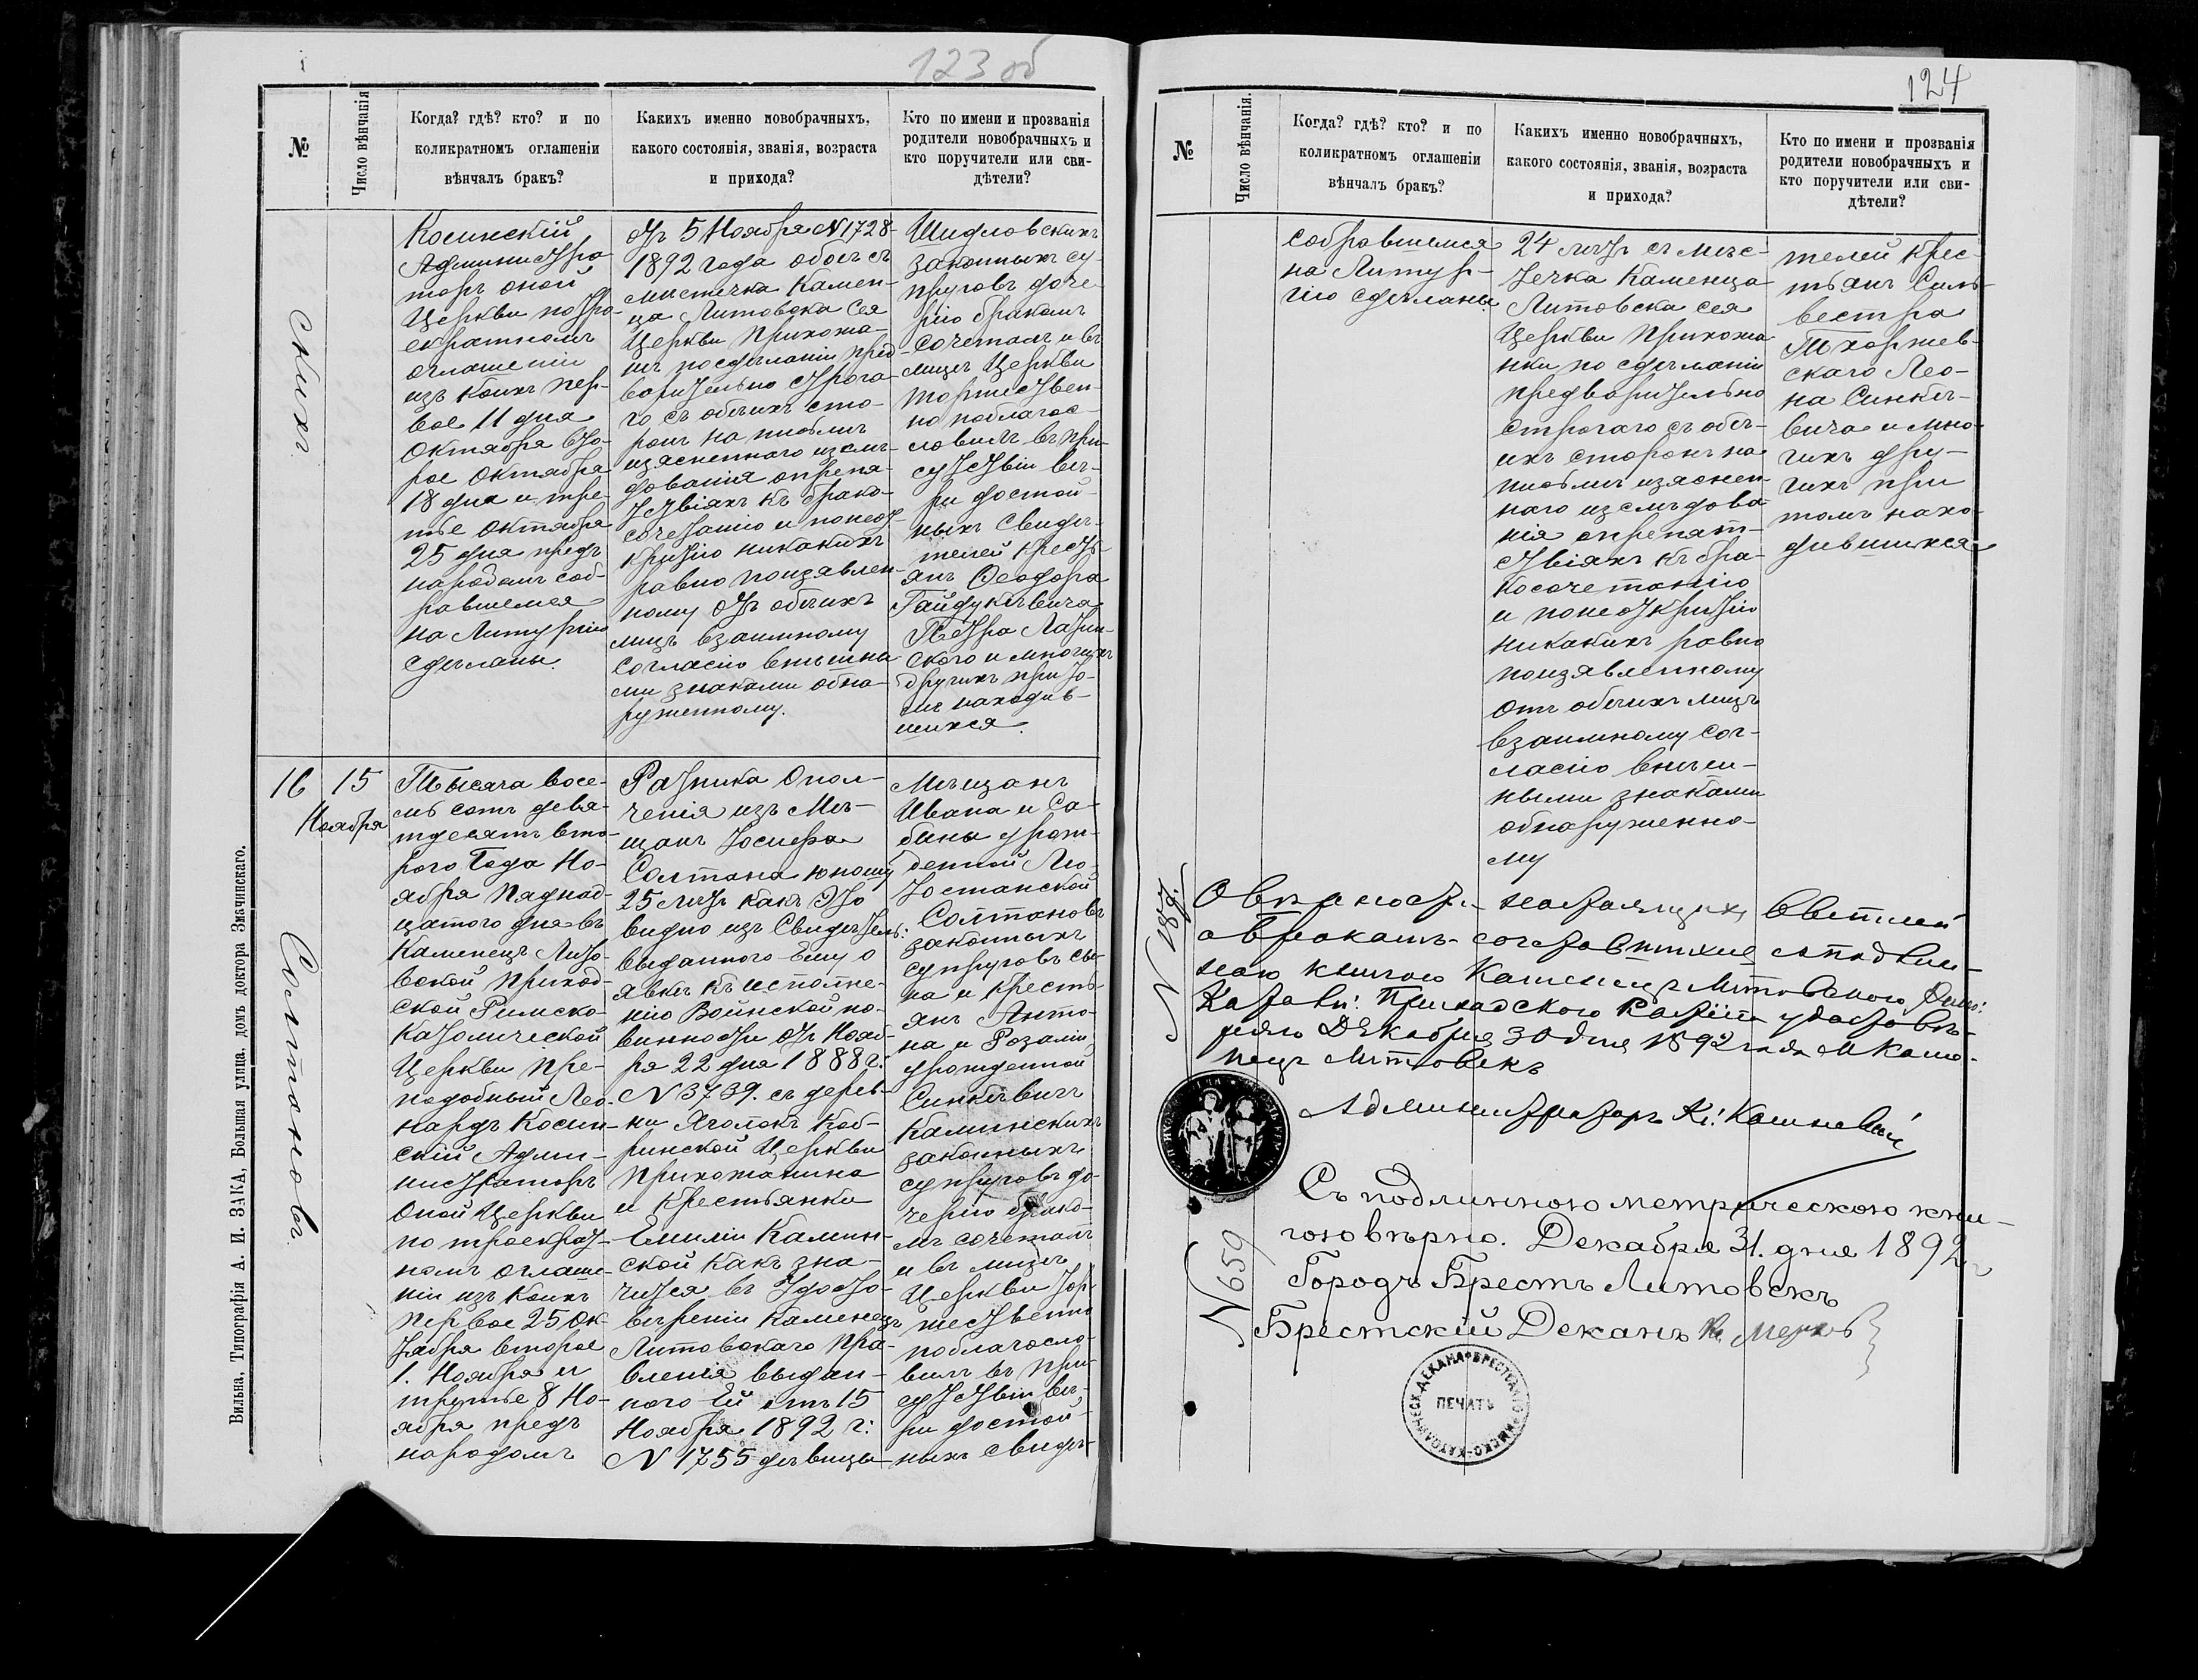 123 об
№
Число вѣнчанія
Когда? гдѣ? кто? и по
коликратномъ оглашеніи
вѣнчалъ бракъ?
Какихъ именно новобрачныхъ,
какого состоянія, званія, возраста
и прихода?
Кто по имени и прозванія
родители новобрачныхъ и
кто поручители или сви-
дѣтели?
скихъ
Косинскій
Администра
торъ оной
Церкви по тро-
екратномъ
оглашеніи
изъ коихъ пер-
вое 11 дня
Октября вто-
рое Октября
18 дня и тре-
тье Октября
25 дня предъ
народомъ соб-
равшемся
на Литургію
сдѣланы.
отъ 5 Ноября N 1728
1892 года обоихъ съ
мѣстечка Камен-
ца Литовска сея
Церкви Прихожа-
нъ по сдѣланіи пред
варительно строга-
го съ обѣихъ сто-
ронъ на письмѣ
изясненнаго изслѣ-
дованія о препя-
тствіяхъ къ брако-
сочетанію и по неот-
крытію никакихъ
равно по изявлен-
ному отъ обѣихъ
лицъ взаимному
согласію внѣшны
ми знаками обна-
руженному.
Шидловскихъ
законныхъ су-
пруговъ доче
рію бракомъ
сочеталъ и въ
лицѣ Церкви
торжествен-
но поблагос-
ловилъ въ при-
сутствіи вѣ-
ры достой-
ныхъ Свидѣ-
телей Кресть-
янъ Ѳеодора
Гайдукевича
Петра Латын-
ского и многихъ
другихъ при то-
мъ находив-
шихся.
16
15
Ноября
Солтановъ.
Тысяча восе-
мь сотъ девя-
тдесятъ вто-
рого Года Но-
ября Пяднад-
цатого дня въ
Каменецъ Лито-
вской Приход-
ской Римско-
Католической
Церкви Пре-
подобный Лео-
нардъ Косин-
скій Адми-
нистраторъ
Оной Церкви
по троекрат-
номъ оглаше-
ніи изъ коихъ
первое 25 Ок
тября второе
1. Ноября и
третье 8 Но-
ября предъ
народомъ
Ратника Опол-
ченія изъ Мѣ-
щанъ Іосифа
Солтана юношу
25 лѣтъ какъ это
видно изъ Свидѣтель:
выданного Ему о
явкѣ къ исполне-
нію Воинской по-
винности отъ Нояб-
ря 22 дня 1888 г:
N 3739. съ дерев-
ни Яголокъ Коб-
ринской Церкви
Прихожанина
и Крестьянки
Емиліи Камин-
ской какъ зна-
чится въ Удосто-
вѣреніи Каменецъ
Литовскаго Пра-
вленія выдан-
ного Ей отъ 15
Ноября 1892 г:
N 1755 дѣвицы
Мѣщанъ
Ивана и Са-
бины урож-
денной Лю-
тостанской
Солтановъ
законныхъ
супруговъ сы-
на и Кресть-
янъ Анто-
на и Розаліи
урожденной
Синкѣвичъ
Каминскихъ
законныхъ
супруговъ до-
черію брако-
мъ сочеталъ
и въ лицѣ
Церкви тор-
жественно
поблагосло-
вилъ въ при-
сутствіи вѣ-
ры достой-
ныхъ свидѣ-
Вильна, Типографія А. И. ЗАКА, Большая улица, домъ доктора Змачинскаго.
124
№
Число вѣнчанія.
Когда? гдѣ? кто? и по
коликратномъ оглашеніи
вѣнчалъ бракъ?
Какихъ именно новобрачныхъ,
какого состоянія, званія, возраста
и прихода?
Кто по имени и прозванія
родители новобрачныхъ и
кто поручители или сви-
дѣтели?
собравшемся
на Литур-
гію сдѣланы.
24 лѣтъ съ мѣс-
течка Каменца
Литовска сея
Церкви Прихожа
нки по сдѣланіи
предварительно
строгаго съ обѣ-
ихъ сторонъ на
письмѣ изяснен-
наго изслѣдова
нія о препят-
ствіяхъ къ бра-
косочетанію
и по неоткрытію
никакихъ равно
по изявленному
отъ обѣихъ лицъ
взаимному сог-
ласію внѣш-
ными знаками
обнаруженно-
му
телей Крес-
тьянъ Силь-
вестра
Тхоржев-
скаго Лео-
на Синкѣ-
вича и мно-
гихъ дру-
гихъ при
томъ нахо-
дившихся
N 187.
О вѣрности настоящихъ
о бракомъ сочетавшихся съ подлин-
ною книгою Каменецъ Литовского Рим:
Катол: Приходского удостовѣ-
ряю Декабря 30 дня 1892 года М Каме-
нецъ Литовскъ
Администраторъ Кс:
N 659
Съ подлинною метрическою кни-
гою вѣрно. Декабря 31. дня 1892
Городъ Брестъ Литовскъ
Брестскій Деканъ Кс.
ПЕЧАТЬ